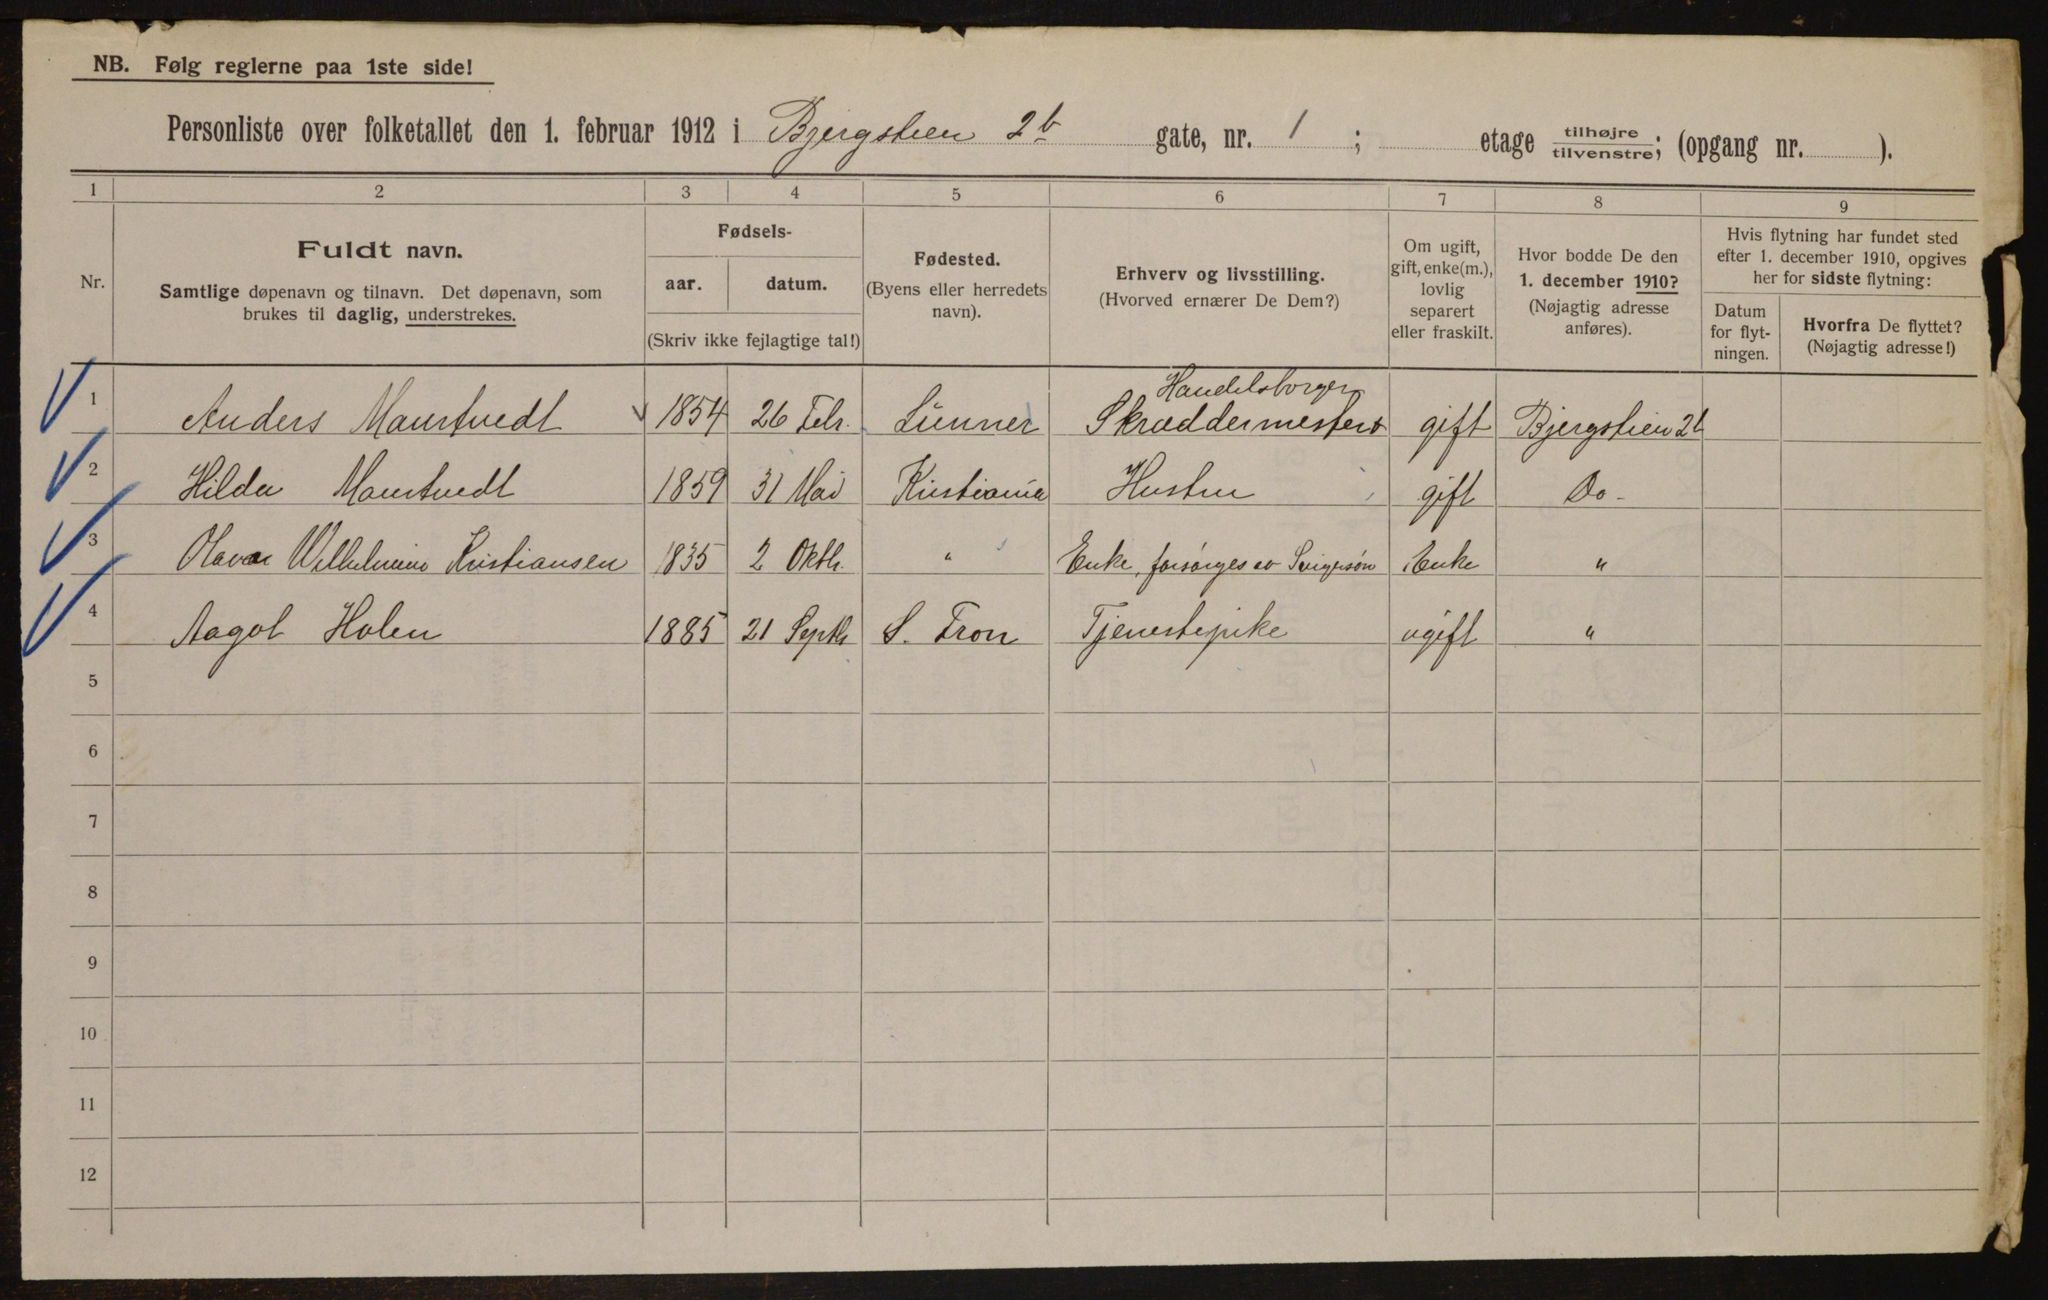 NB. Følg reglerne paa 1ste side!
Personliste over folketallet den 1. februar 1912 i Bjergstien 2b gate, nr. 1 ; etage tilhøjre tilvenstre; (opgang nr. ).
1 2 3 4 5 6 7 8 9
Nr.
Fuldt navn.
Samtlige døpenavn og tilnavn. Det døpenavn, som
brukes til daglig, understrekes.
Fødsels-
aar. datum.
(Skriv ikke fejlagtige tal!)
Fødested.
(Byens eller herredets
navn).
Erhverv og livsstilling.
(Hvorved ernærer De Dem?)
Om ugift,
gift, enke(m.),
lovlig
separert
eller fraskilt.
Hvor bodde De den
1. december 1910?
(Nøjagtig adresse
anføres).
Hvis flytning har fundet sted
efter 1. december 1910, opgives
her for sidste flytning:
Datum
for flyt-
ningen.
Hvorfra De flyttet?
(Nøjagtig adresse!)
Handelsborger
1 Anders Maurtvedt 1854 26 Febr. Lunner Skræddermester gift Bjergstien 2b
2 Hilda Maurtvedt 1859 31 Mai Kristiania Hustru gift Do-
3 Olava Wilhelmine Kristiansen 1835 2 Oktb. " Enke, forsørges av Svigersøn Enke "
4 Aagot Holen 1885 21 Septb S. Fron Tjenestepike ugift "
5
6
7
8
9
10
11
12